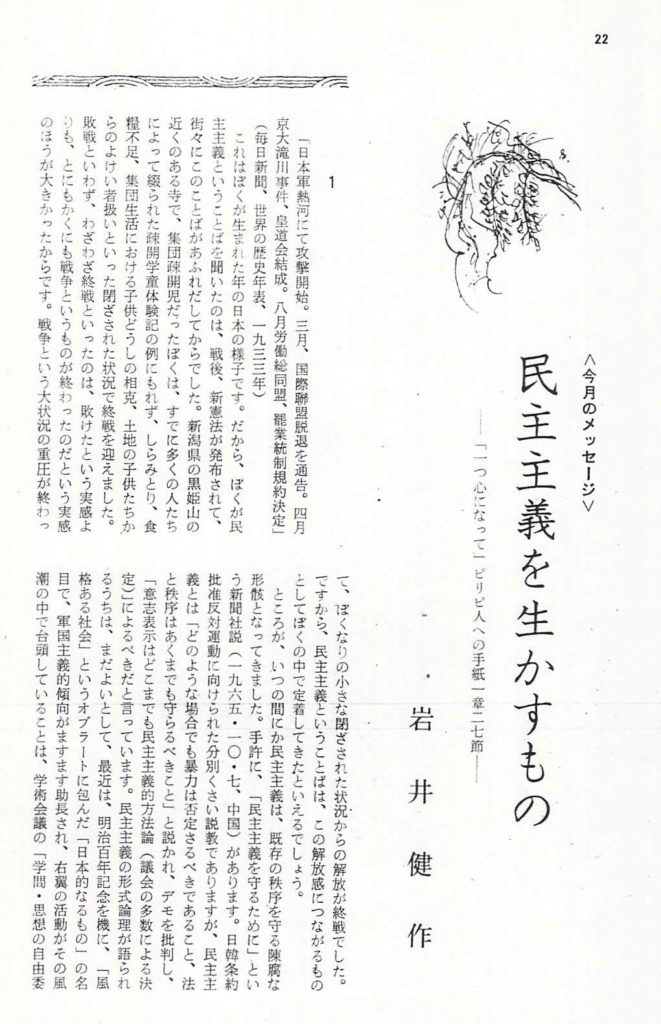 22
＜今月のメッセージ＞
民主主義を生かすもの
――「一つ心になって」ピリピ人への手紙一章二七節――
岩井健作
1
「日本軍熱河にて攻撃開始。三月、国際聯盟脱退を通告。四月
京大滝川事件、皇道会結成。八月労働総同盟、罷業統制規約決定」
（毎日新聞、世界の歴史年表、一九三三年）
これはぼくが生まれた年の日本の様子です。だから、ぼくが民
主主義ということばを聞いたのは、戦後、新憲法が発布されて、
街々にこのことばがあふれだしてからでした。新潟県の黒姫山の
近くのある寺で、集団疎開児だったぼくは、すでに多くの人たち
によって綴られた疎開学童体験記の例にもれず、しらみとり、食
糧不足、集団生活における子供どうしの相克、土地の子供たちか
らのよけい者扱いといった閉ざされた状況で終戦を迎えました。
敗戦といわず、わざわざ終戦といったのは、敗けたという実感よ
りも、とにもかくにも戦争というものが終わったのだという実感
のほうが大きかったからです。戦争という大状況の重圧が終わっ
て、ぼくなりの小さな閉ざされた状況からの解放が終戦でした。
ですから、民主主義ということばは、この解放感につながるもの
としてぼくの中で定着してきたといえるでしょう。
ところが、いつの間にか民主主義は、既存の秩序を守る陳腐な
形骸となってきました。手許に、「民主主義を守るために」とい
う新聞社説（一九六五・一〇・七、中国）があります。日韓条約
批准反対運動に向けられた分別くさい説教でありますが、民主主
義とは「どのような場合でも暴力は否定さるべきであること、法
と秩序はあくまでも守らるべきこと」と説かれ、デモを批判し、
「意志表示はどこまでも民主主義的方法論（議会の多数による決
定）によるべきだと言っています。民主主義の形式論理が語られ
るうちは、まだよいとして、最近は、明治百年記念を機に、「風
格ある社会」というオブラートに包んだ「日本的なるもの」の名
目で、軍国主義的傾向がますます助長され、右翼の活動がその風
潮の中で台頭していることは、学術会議の「学問・思想の自由委